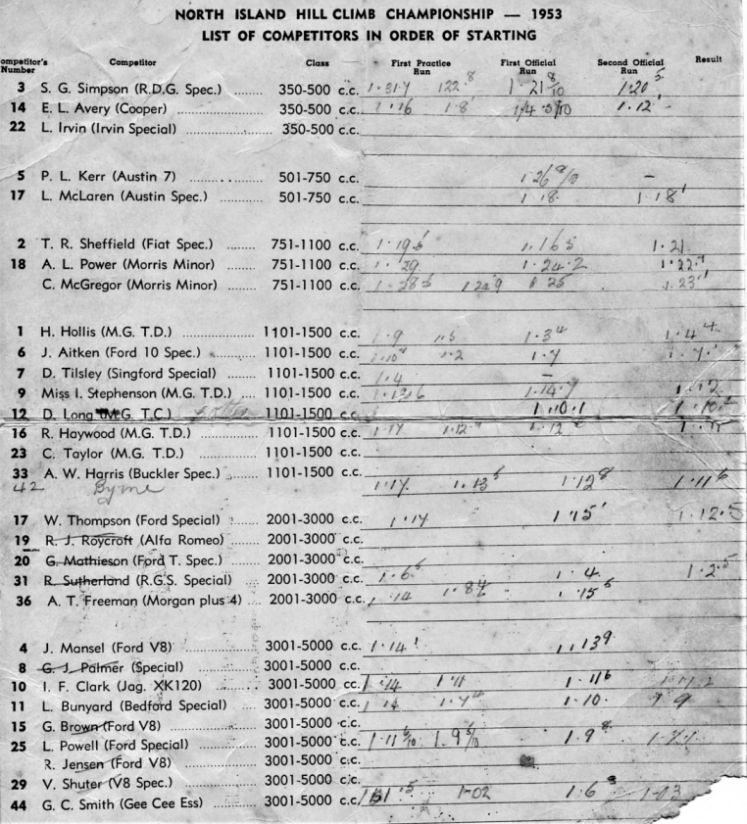 NORTH ISLAND HILL CLIMB CHAMPIONSHIP — 1953
LIST OF COMPETITORS IN ORDER OF STARTING
Competitor's Number Competitor Class First Practice Run First Official Run Second Official Run Result
3 S. G. Simpson (R.D.G. Spec.) ........ 350-500 c.c. 1·31·4 122·8 1·21 8/10 1·20 5
14 E. L. Avery (Cooper) ........ 350-500 c.c. 1·16 1·8 1·12
22 L. Irvin (Irvin Special) ........ 350-500 c.c.
5 P. L. Kerr (Austin 7) ........ 501-750 c.c. –
17 L. McLaren (Austin Spec.) ........ 501-750 c.c. 1·18 1·18
2 T. R. Sheffield (Fiat Spec.) ........ 751-1100 c.c. 1·16 5 1·21
18 A. L. Power (Morris Minor) ........ 751-1100 c.c. 1·29 1·24·2
C. McGregor (Morris Minor) ........ 751-1100 c.c. 1·25
1 H. Hollis (M.G. T.D.) ........ 1101-1500 c.c. 1·9 1·5 1·3 4 1·4 4
6 J. Aitken (Ford 10 Spec.) ........ 1101-1500 c.c. 1·2 1·7
7 D. Tilsley (Singford Special) ........ 1101-1500 c.c. 1·4 –
9 Miss I. Stephenson (M.G. T.D.) .... 1101-1500 c.c. 1·12
12 D. Long (M.G. T.C.) 1101-1500 c.c. 1·10·1
16 R. Haywood (M.G. T.D.) ........ 1101-1500 c.c. 1·17
23 C. Taylor (M.G. T.D.) ........ 1101-1500 c.c.
33 A. W. Harris (Buckler Spec.) ........ 1101-1500 c.c.
42 Byrne 1·17 1·13 5 1·12 8 1·11 6
17 W. Thompson (Ford Special) ........ 2001-3000 c.c. 1·14 1·15 1·12·5
19 R. J. Roycroft (Alfa Romeo) ........ 2001-3000 c.c.
20 G. Mathieson (Ford T. Spec.) ........ 2001-3000 c.c.
31 R. Sutherland (R.G.S. Special) ........ 2001-3000 c.c. 1·6 1·4 1·2·5
36 A. T. Freeman (Morgan plus 4) .... 2001-3000 c.c. 1·14 1·15 6
4 J. Mansel (Ford V8) ........ 3001-5000 c.c. 1·14 1·13 9
8 G. J. Palmer (Special) ........ 3001-5000 c.c.
10 I. F. Clark (Jag. XK120) ........ 3001-5000 cc. 1·14 1·11 1·11 6
11 L. Bunyard (Bedford Special) ........ 3001-5000 c.c. 1·14 1·10
15 G. Brown (Ford V8) ........ 3001-5000 c.c.
25 L. Powell (Ford Special) ........ 3001-5000 c.c. 1·9 8
R. Jensen (Ford V8) ........ 3001-5000 c.c.
29 V. Shuter (V8 Spec.) ........ 3001-5000 c.c.
44 G. C. Smith (Gee Cee Ess) ........ 3001-5000 c.c. 1·02 1·6 1·13